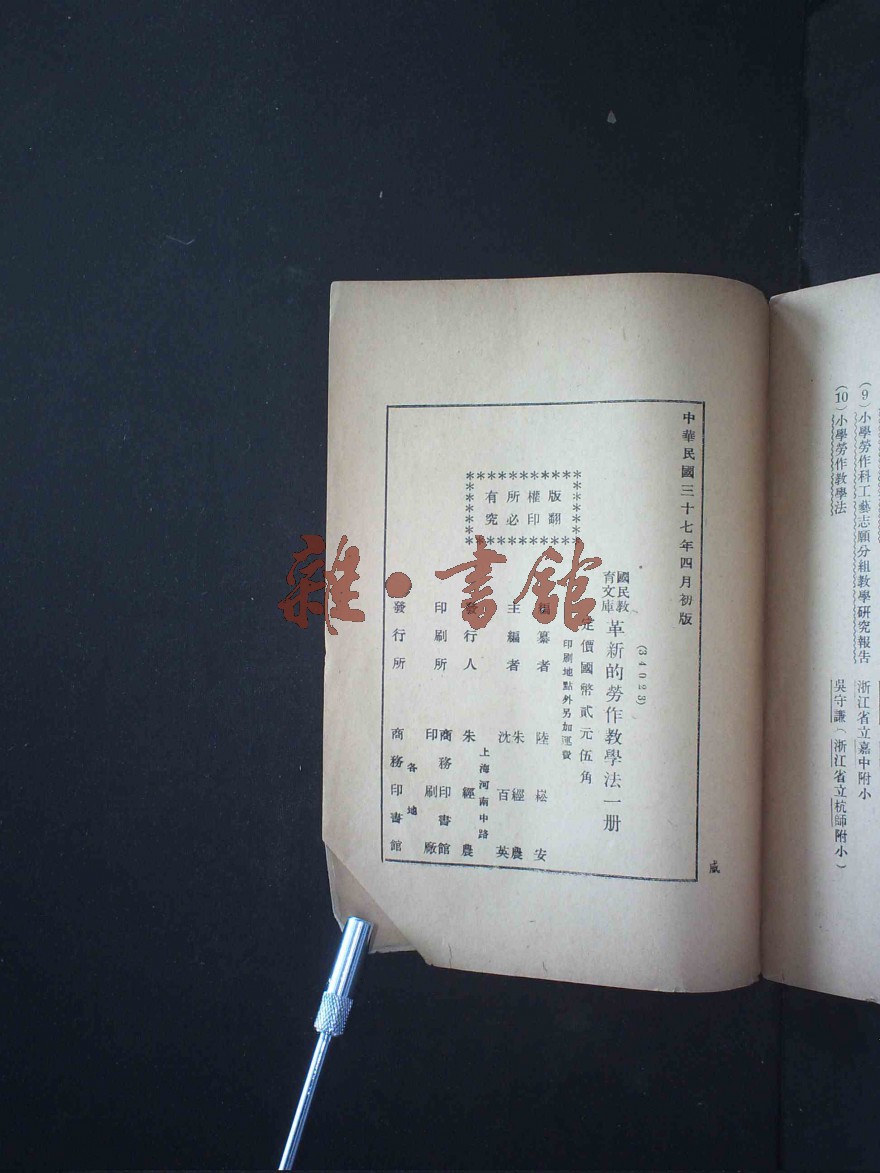 (9)小學勞作科工藝志願分組教學研究報告 浙江省立嘉中附小
(10)小學勞作教學法 吳守謙(浙江省立杭師附小)
中華民國三十七年四月初版
(34023)
國民教育文庫 革新的勞作教學法一册
定價國幣貳元伍角
印刷地點外另加運費
版權所有
翻印必究
編纂者 陸崧安
主編者 朱經農 沈百英
發行人 朱經農
上海河南中路
印刷所 商務印書館印刷廠
各地
發行所 商務印書館
威
雜·書館